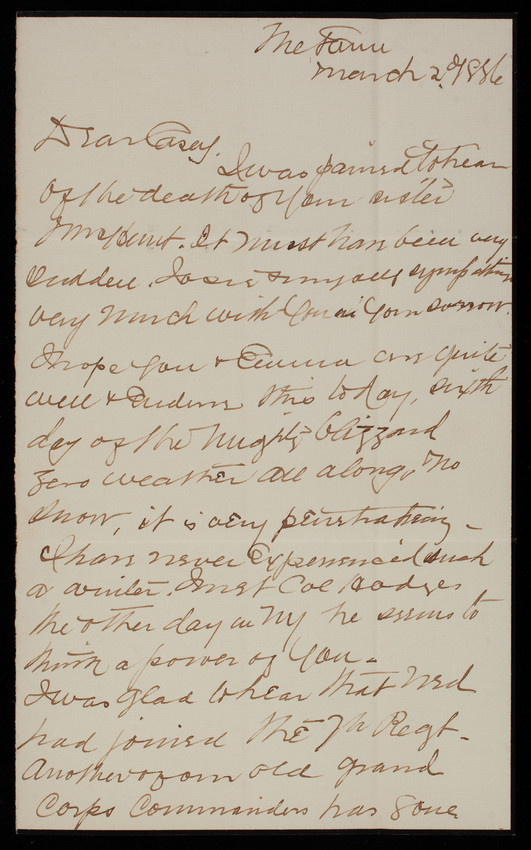 The Farm
March 2d, 1886
Dear Casey,
I was pained to hear
of the death of your sister
Mrs Hunt. It must have been very
sudden. Josie & myself sympathize
very much with you in your sorrow.
I hope you & Emma are quite
well & endure this to day, sixth
day of the mighty blizzard
Zero weather all along, no
snow, it is very penetrating -
I have never experienced such
a winter. I met Col Hodges
the other day in NY he seems to
think a power of you -
I was glad to hear that Ned
had joined the 7th Regt -
Another of our old grand
Corps Commanders has gone